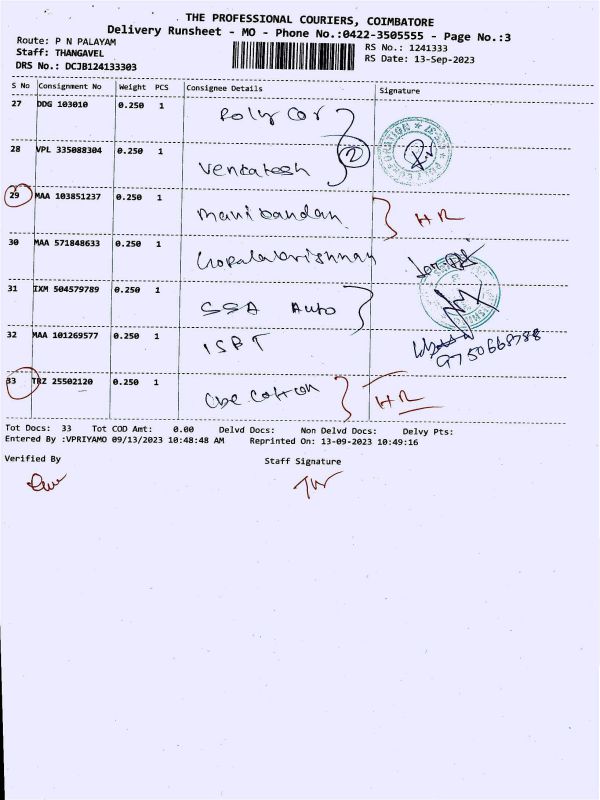 THE PROFESSIONAL COURIERS, COIMBATORE
Delivery Runsheet - MO - Phone No.:0422-3505555 - Page No.:3
Route: P N PALAYAM
Staff: THANGAVEL
DRS No.: DCJB124133303
RS No.: 1241333
RS Date: 13-Sep-2023
S No Consignment No Weight PCS Consignee Details Signature
27 DDG 103010 0.250 1 Poly Cor
28 VPL 335088304 0.250 1 Venkatesh 2
29 MAA 103851237 0.250 1 manibandan HR
30 MAA 571848633 0.250 1 Gopalakrishnan
31 IXM 504579789 0.250 1 SSA Auto
32 MAA 101269577 0.250 1 ISBT
9750668788
33 TRZ 25502120 0.250 1 Cbe Cotton HR
Tot Docs: 33 Tot COD Amt: 0.00 Delvd Docs: Non Delvd Docs: Delvy Pts:
Entered By :VPRIYAMO 09/13/2023 10:48:48 AM Reprinted On: 13-09-2023 10:49:16
Verified By Staff Signature